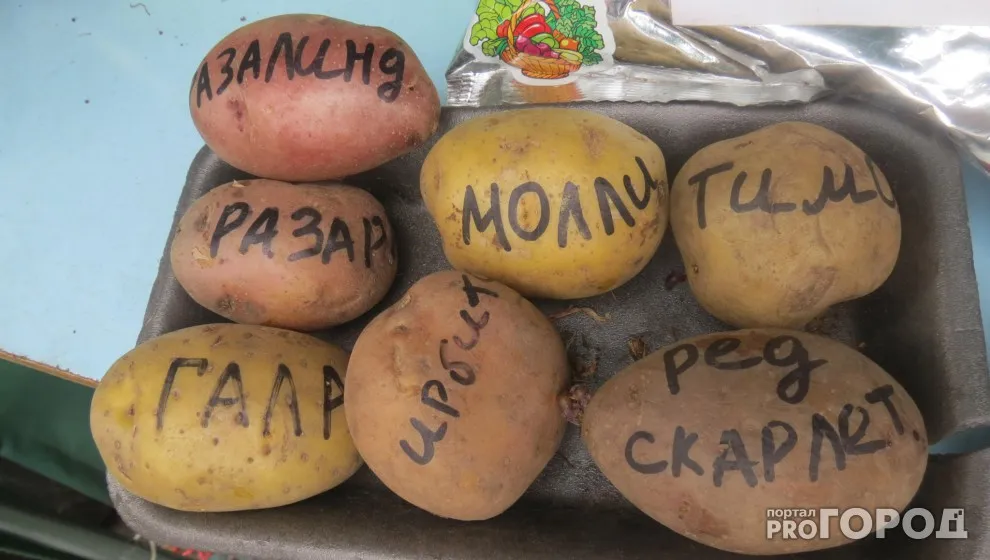 АЗАЛИНД
РАЗАР
МОЛЛИ
ТИМО
ГАЛА
ИРБИТ
РЕД
СКАРЛЕТ
портал
PROГОРОД